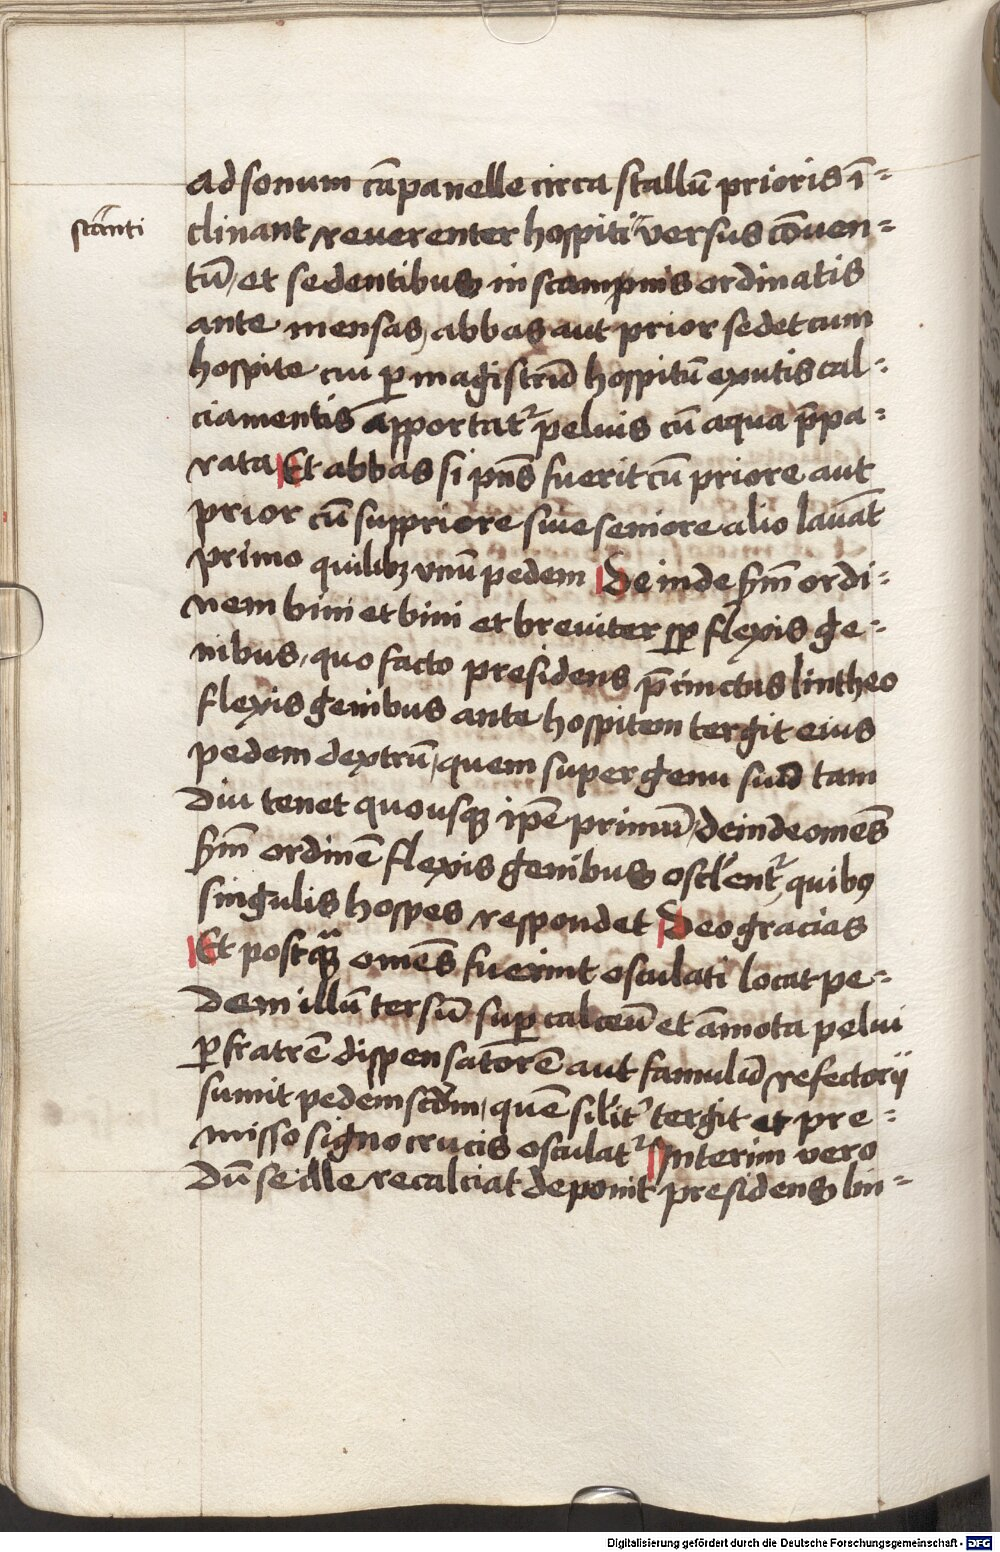 ad sonum cāpanelle circa stallū prioris ī=
stanti
clinant reuerenter hospiti versus cōuen=
tū, et sedentibus in scampnis ordinatis
ante mensas, abbas aut prior sedet cum
hospite cui ꝑ magistrū hospitū exutis cal=
ciamentis apportatᷣ peluis cū aqua p̄pa=
rata Et abbas si pn̄s fuerit cū priore aut
prior cū suppriore siue seniore alio lauāt
primo quilibꝫ vnū pedem Deinde scd̄m ordi=
nem bini et bini et breuiter suꝑ flexis ge=
nibus, quo facto presidens p̄cinctus lintheo
flexis genibus ante hospitem tergit eius
pedem dextrū, quem super genu suū tam
diu tenet quousqꝫ ip̄e primū, deinde om̄es
scd̄m ordinē flexis genibus osclēntᷣ, quibꝯ
singulis hospes respondet Deo gracias
Et postqꝫ om̄es fuerint osculati locat pe=
dem illū tersū suꝑ calceū et āmota pelui
ꝑ fratrē dispensatorē aut famulū refectorij
sumit pedem scd̄m, quē silīt᾽ tergit et pre=
misso signo crucis osculatᷣ Interim vero
dū se ille recalciat deponit presidens lin=
Digitalisierung gefördert durch die Deutsche Forschungsgemeinschaft - DFG